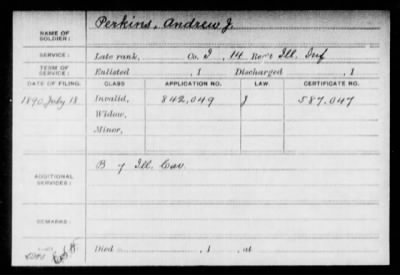 Perkins, Andrew J.
NAME OF SOLDIER:
SERVICE: Late rank, Co. I, 14 Reg't Ill. Inf
TERM OF SERVICE: Enlisted , 1 Discharged , 1
DATE OF FILING. CLASS APPLICATION NO. LAW CERTIFICATE NO.
1890 July 18 Invalid, 842,049 J 587,047
Widow,
Minor,
B 7 Ill. Cav.
ADDITIONAL SERVICES:
REMARKS:
Died , 1 , at